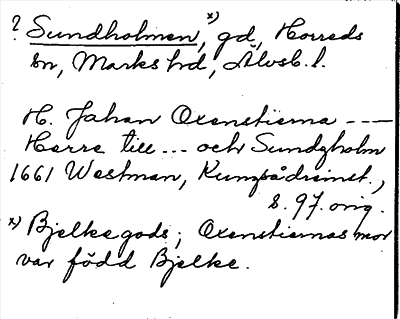 ? Sundholmen, x) gd, Horreds
sn, Marks hd, Älvsb. l.
H. Johan Oxenstierna ---
Herre till --- och Sundzholm
1661 Westman, Kungsådrinst.,
s. 97. orig.
x) Bjelkegods; Oxenstiernas mor
var född Bjelke.